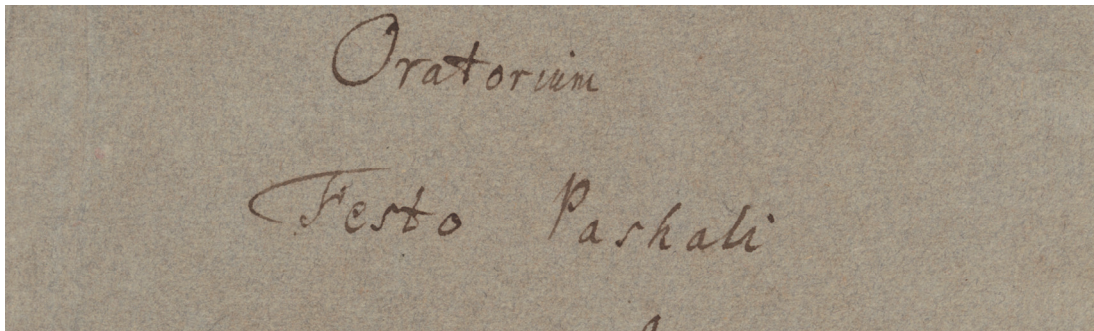 Oratorium
Festo Pashali